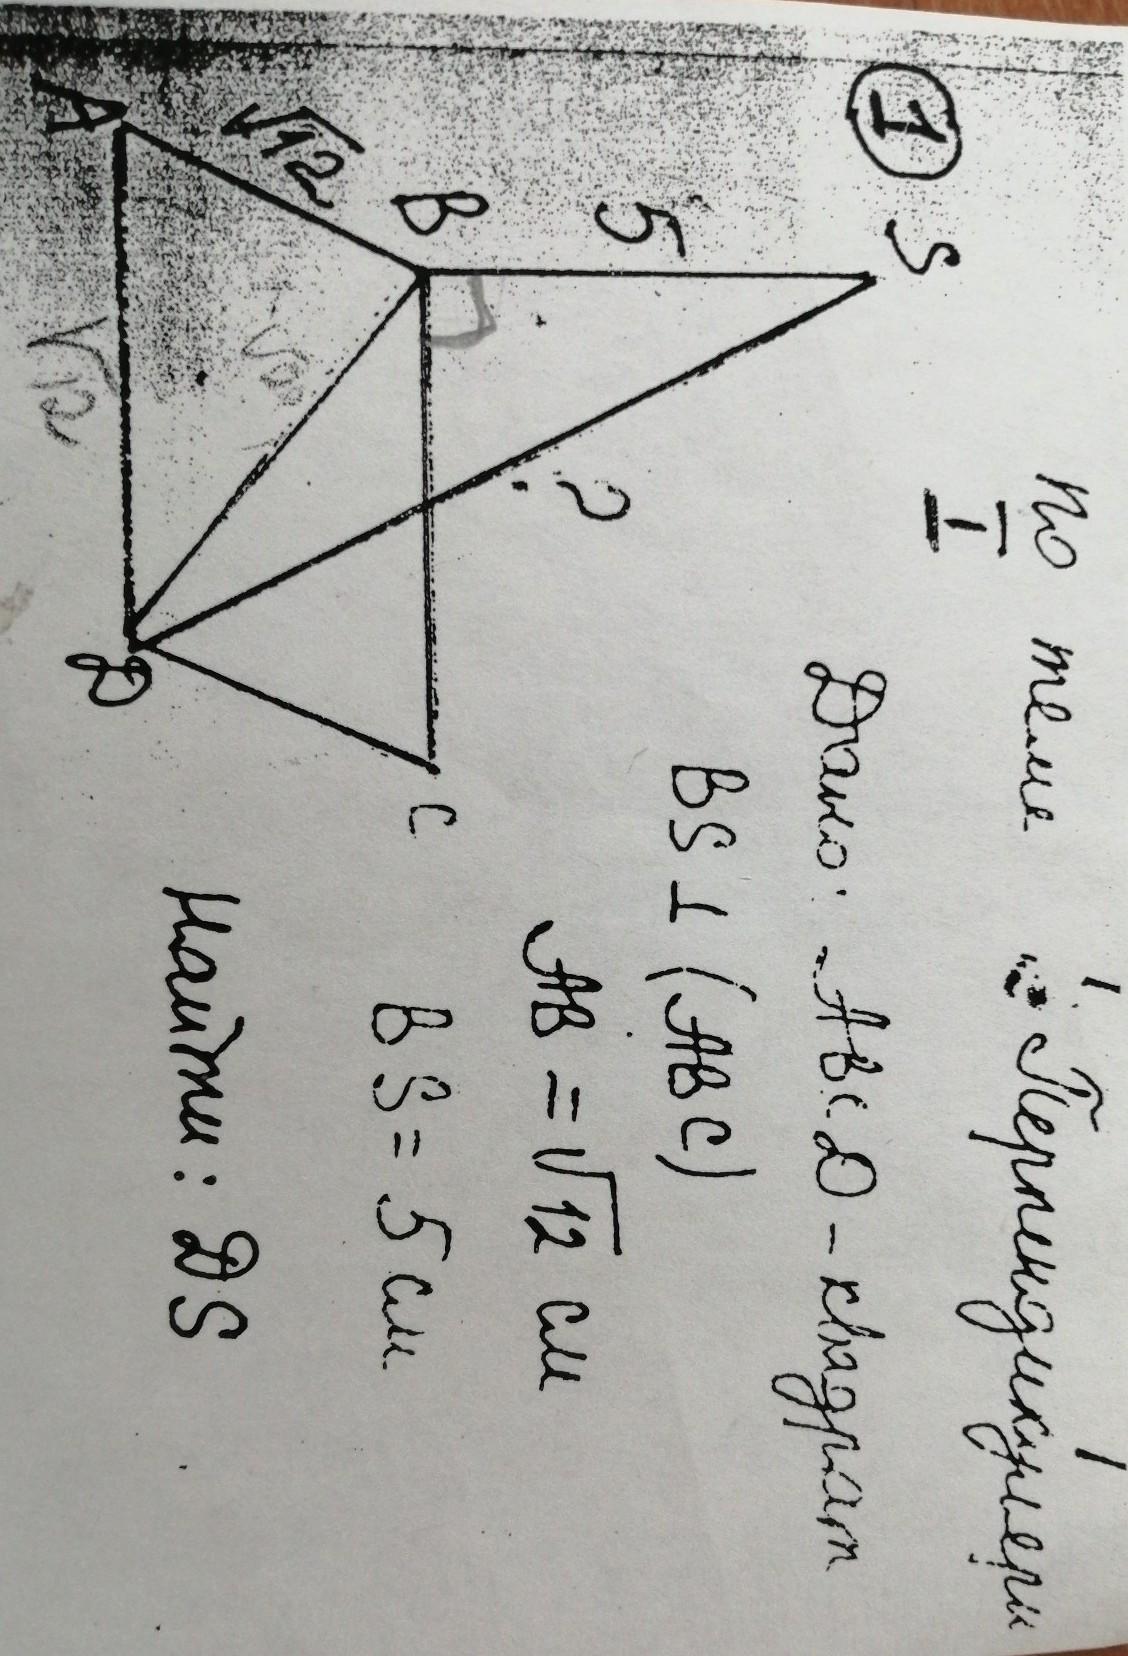 по теме "Перпендикуляры
I
1
Дано: ABCD - квадрат
BS ⊥ (ABC)
AB = √12 см
BS = 5 см.
Найти: DS
S
5
?
B
C
√12
A
D
√12